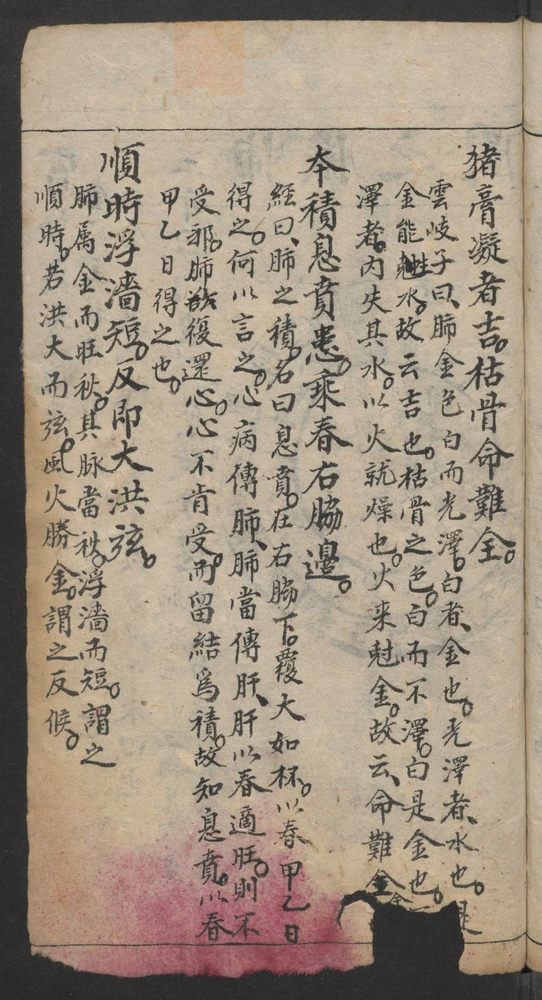 猪膏凝者吉。枯骨命難全。
雲岐子曰、肺金色白而光澤。白者、金也。光澤者、水也。是
金能生水。故云吉也。枯骨之色。白而不澤。白是金也。
澤者。内失其水。以火就燥也。火来尅金。故云、命難全
本積息賁患。乘春右脇邊。
經曰、肺之積。名曰息賁。在右脇下。覆大如杯。以春甲乙日
得之。何以言之。心病傳肺、肺當傳肝、肝以春適旺。則不
受邪。肺欲復還心。心不肯受。而留結爲積。故知息賁。以春
甲乙日得之也。
順時浮濇短。反即大洪弦。
肺属金而旺秋。其脉當秋。浮濇而短。謂之
順時。若洪大而弦。風火勝金。謂之反候。